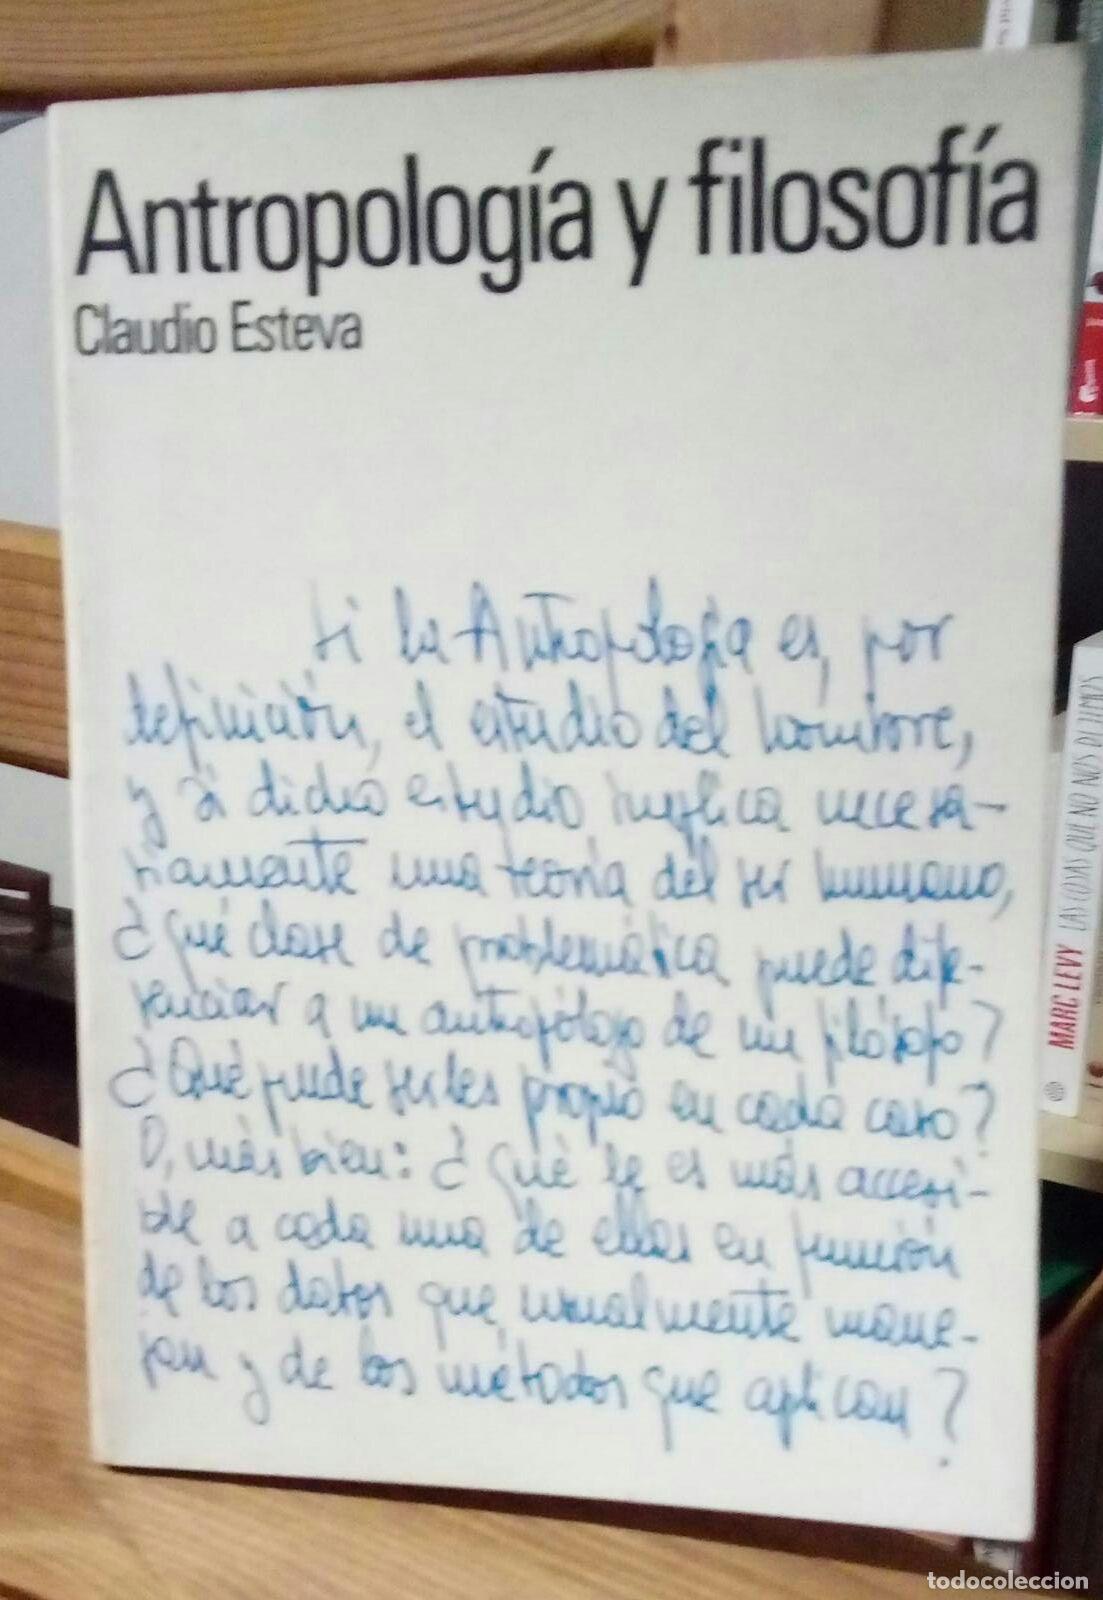 Antropología y filosofía
Claudio Esteva
Si la Antropología es, por
definición, el estudio del hombre,
y si dicho estudio implica necesa-
riamente una teoría del ser humano,
¿Qué clase de problemática puede dife-
renciar a un antropólogo de un filósofo?
¿Qué puede serles propio en cada caso?
O, más bien: ¿Qué le es más accesi-
ble a cada una de ellas en función
de los datos que usualmente mane-
jan y de los métodos que aplican?
MARC LEVY LAS COSAS QUE NO NOS DIJIMOS
todocoleccion